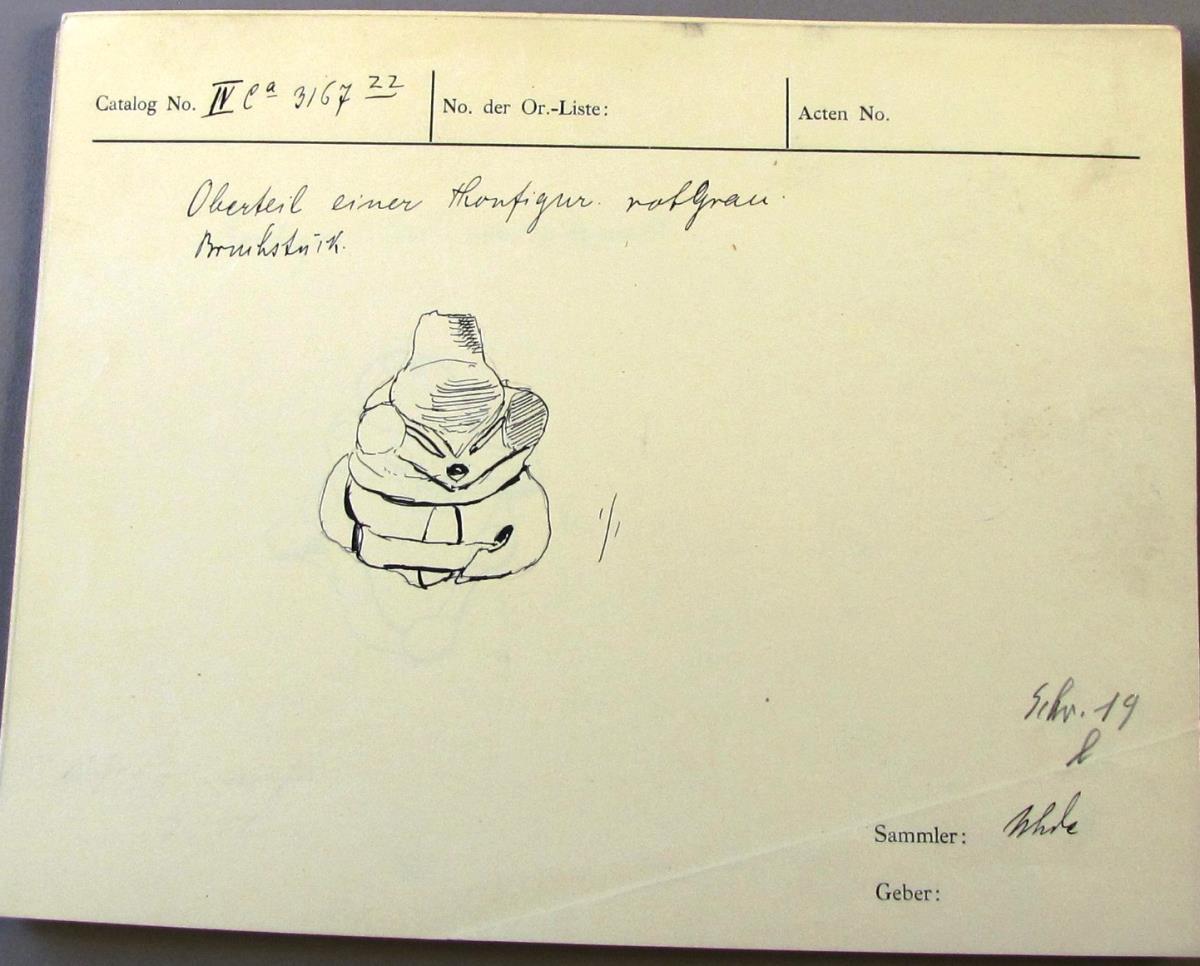 Catalog No. IV Ca 3167 22
No. der Or.-Liste:
Acten No.
Oberteil einer Thonfigur. rotgrau.
Bruchstück.
1/1
Schr. 19
Sammler: Uhde
Geber: